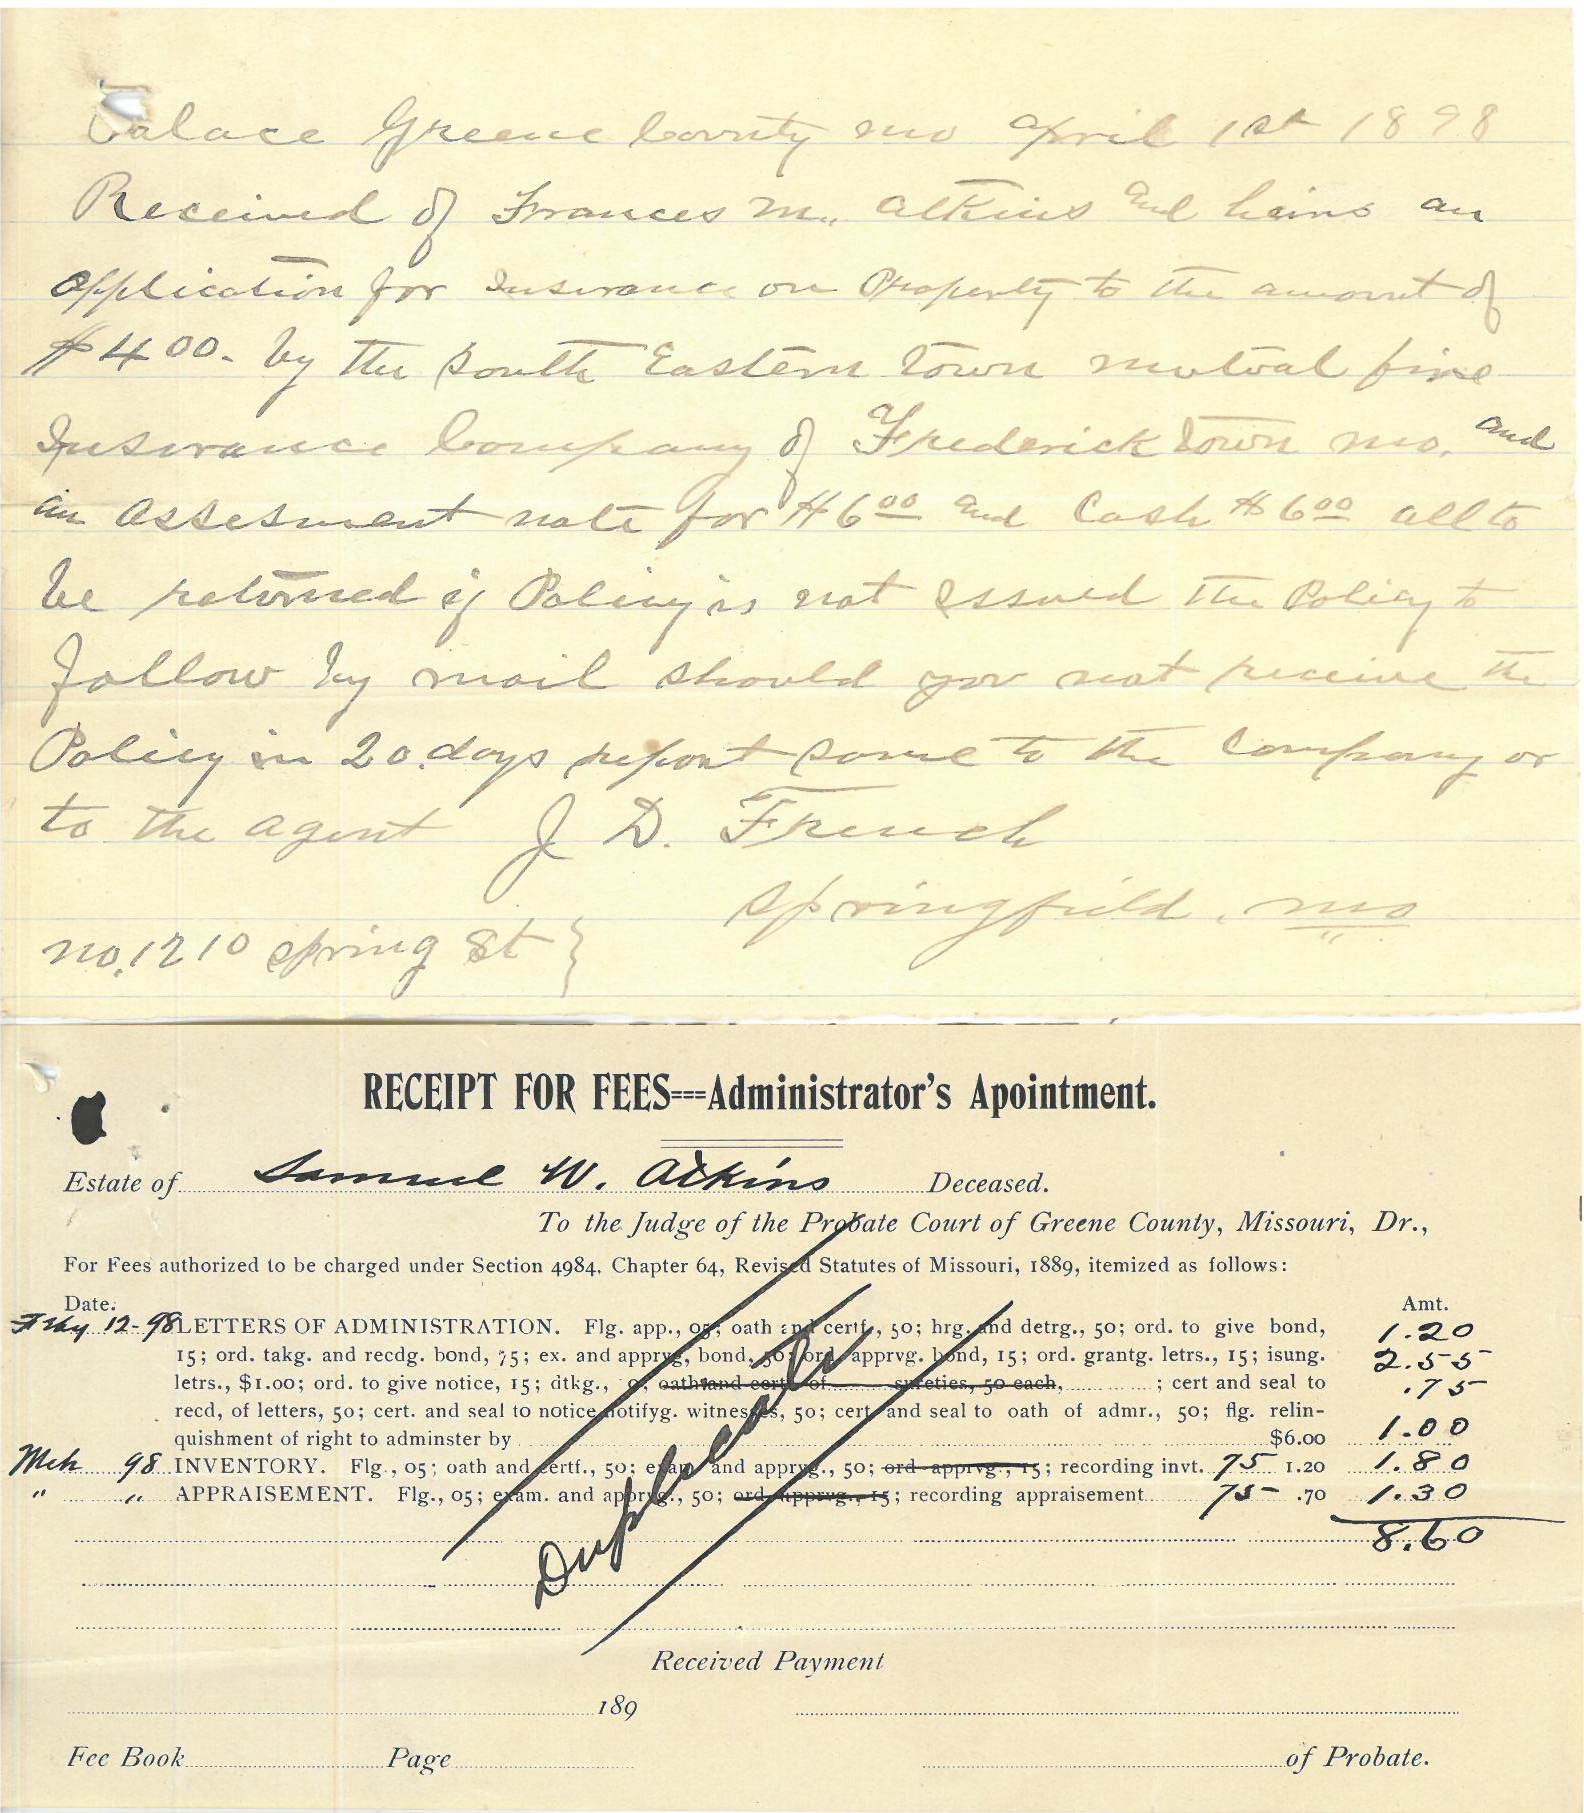 Palace Greene County mo april 1st 1898
Received of Frances M. Atkins and heirs an
application for Insurance on Property to the amount of
$400- by the South Eastern Town mutual fire
Insurance Company of Fredericktown mo. and
an assesment note for $6 00 and Cash $6 00 all to
be returned if Policy is not issued the Policy to
follow by mail should you not receive the
Policy in 20 days report same to the Company or
to the agent J D. French
Springfield. mo
no. 1210 Spring St }
RECEIPT FOR FEES===Administrator's Apointment.
Estate of Samuel W. Atkins Deceased.
To the Judge of the Probate Court of Greene County, Missouri, Dr.,
For Fees authorized to be charged under Section 4984, Chapter 64, Revised Statutes of Missouri, 1889, itemized as follows:
Date. Amt.
Feby 12-98 LETTERS OF ADMINISTRATION. Flg. app., 05; oath and certf., 50; hrg. and detrg., 50; ord. to give bond, 1.20
15; ord. takg. and recdg. bond, 75; ex. and apprvg, bond, 50; ord. apprvg. bond, 15; ord. grantg. letrs., 15; isung. 2.55
letrs., $1.00; ord. to give notice, 15; dtkg., oath and certf of sureties, 50 each, ; cert and seal to .75
recd, of letters, 50; cert. and seal to notice notifyg. witnesses, 50; cert and seal to oath of admr., 50; flg. relin-
quishment of right to adminster by $6.00 1.00
Mch 98 INVENTORY. Flg., 05; oath and certf., 50; exam. and apprvg., 50; ord apprvg., 15; recording invt. 75 1.20 1.80
" " APPRAISEMENT. Flg., 05; exam. and apprvg., 50; ord. apprvg., 15; recording appraisement 75 .70 1.30
8.60
Duplicate
Received Payment
189
Fee Book Page of Probate.